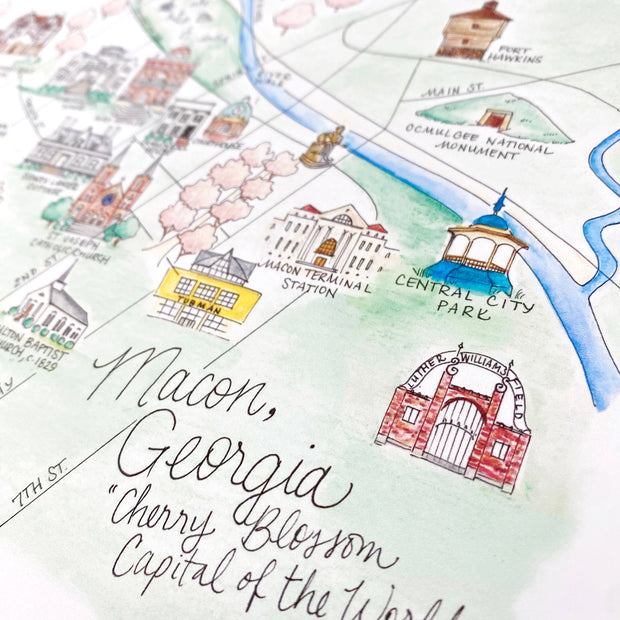 FORT
HAWKINS
MAIN ST.
OCMULGEE NATIONAL
MONUMENT
RIVER
WALK
ST. JOSEPH
CATHOLIC CHURCH
2ND ST
MACON TERMINAL
STATION
CENTRAL CITY
PARK
TUBMAN
BAPTIST
CHURCH, C.1829
LUTHER WILLIAMS FIELD
7TH ST.
Macon,
Georgia
"Cherry Blossom
Capital of the World